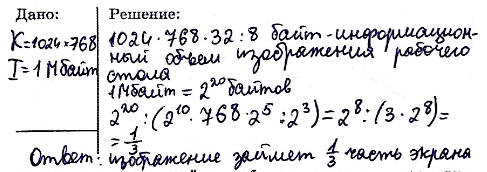 Дано:
К=1024×768
I=1Мбайт
Решение:
1024·768·32:8 байт-информацион-
ный объем изображения рабочего
стола
1Мбайт = 2²⁰ байтов
2²⁰:(2¹⁰·768·2⁵:2³)=2⁸:(3·2⁸)=
=1/3
Ответ: изображение займет 1/3 часть экрана